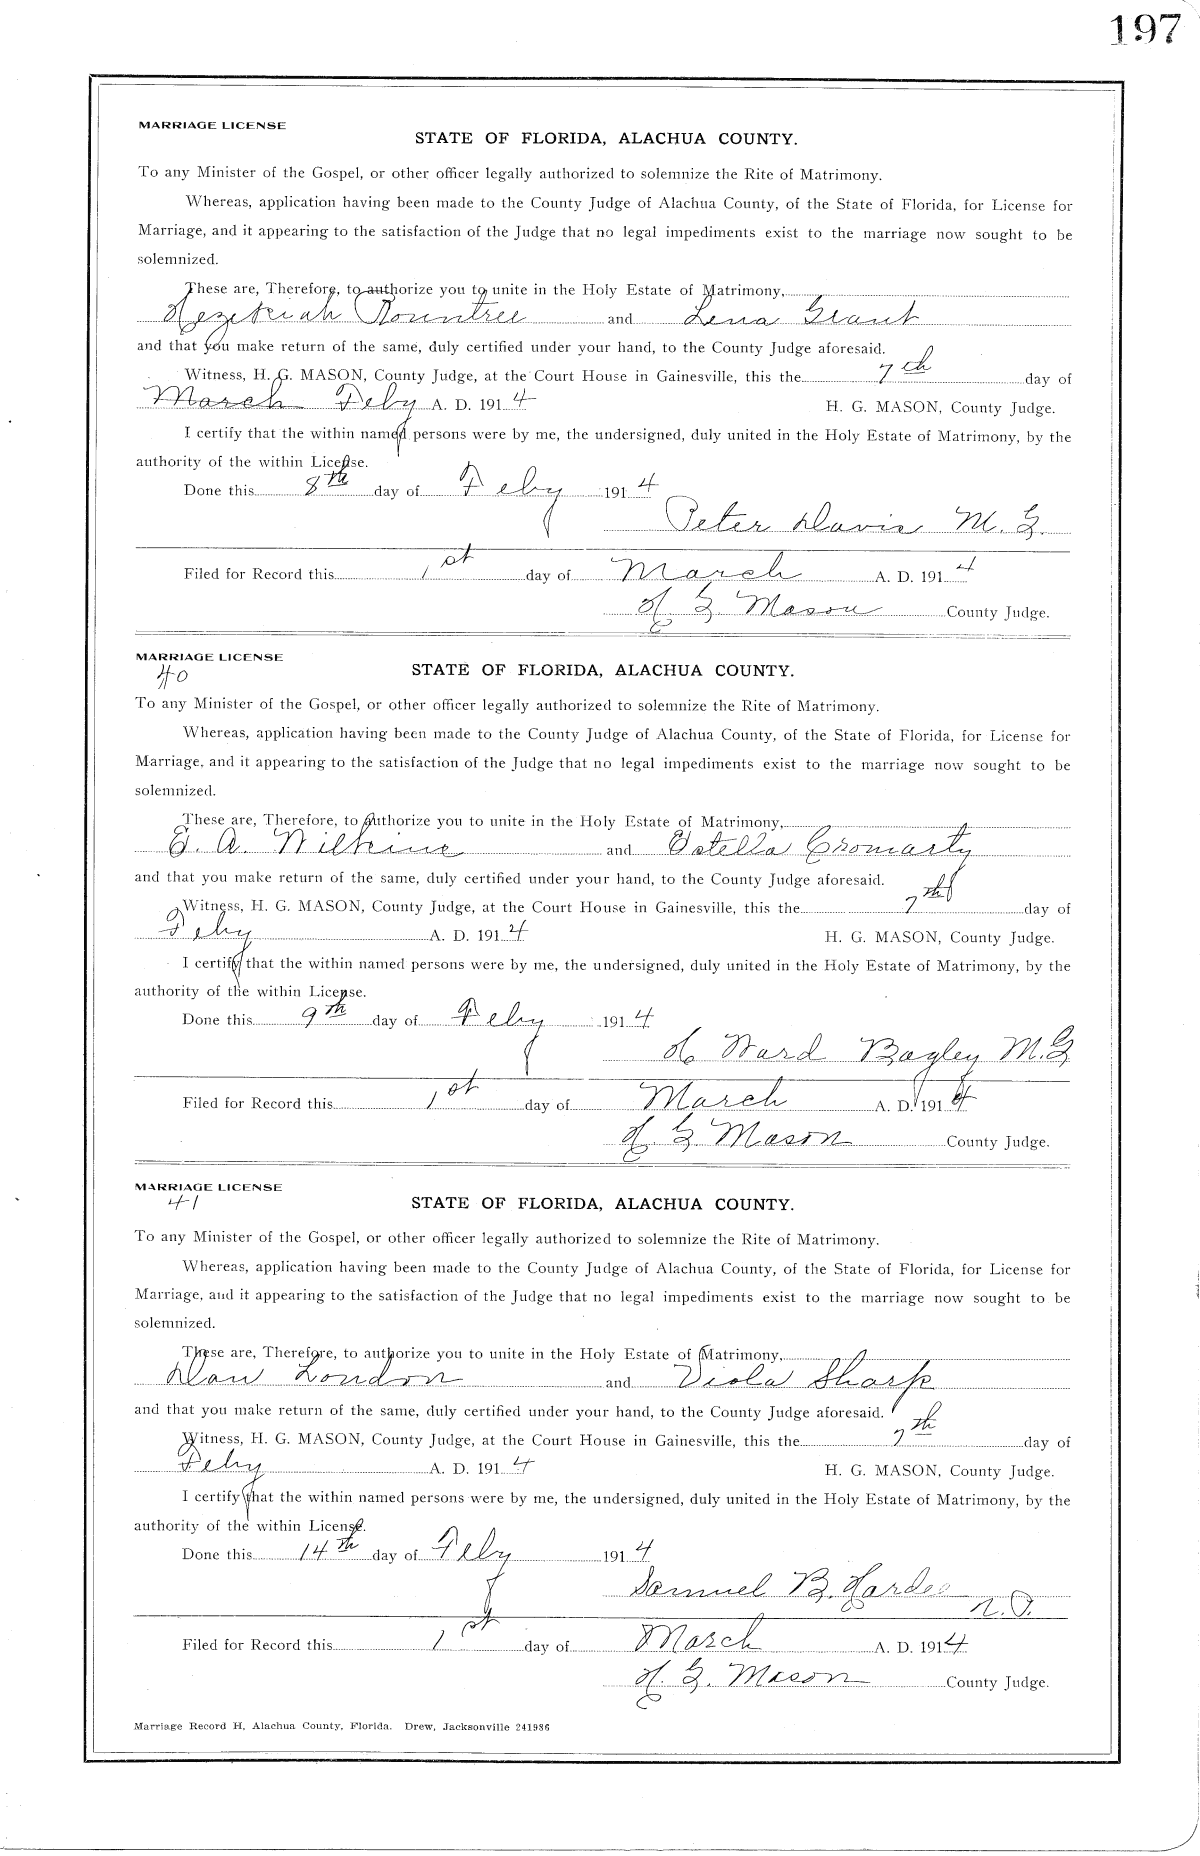 197
MARRIAGE LICENSE
STATE OF FLORIDA, ALACHUA COUNTY.
To any Minister of the Gospel, or other officer legally authorized to solemnize the Rite of Matrimony.
Whereas, application having been made to the County Judge of Alachua County, of the State of Florida, for License for
Marriage, and it appearing to the satisfaction of the Judge that no legal impediments exist to the marriage now sought to be
solemnized.
These are, Therefore, to authorize you to unite in the Holy Estate of Matrimony,
Hezekiah Rountree and Lena Grant
and that you make return of the same, duly certified under your hand, to the County Judge aforesaid.
Witness, H. G. MASON, County Judge, at the Court House in Gainesville, this the 7th day of
March Feby A. D. 1914 H. G. MASON, County Judge.
I certify that the within named persons were by me, the undersigned, duly united in the Holy Estate of Matrimony, by the
authority of the within License.
Done this 8th day of Feby 1914
Peter Davis M. G.
Filed for Record this 1st day of March A. D. 1914
H G Mason County Judge.
MARRIAGE LICENSE
40
STATE OF FLORIDA, ALACHUA COUNTY.
To any Minister of the Gospel, or other officer legally authorized to solemnize the Rite of Matrimony.
Whereas, application having been made to the County Judge of Alachua County, of the State of Florida, for License for
Marriage, and it appearing to the satisfaction of the Judge that no legal impediments exist to the marriage now sought to be
solemnized.
These are, Therefore, to authorize you to unite in the Holy Estate of Matrimony,
E. A. Wilkins and Estella Cromarty
and that you make return of the same, duly certified under your hand, to the County Judge aforesaid.
Witness, H. G. MASON, County Judge, at the Court House in Gainesville, this the 7th day of
Feby A. D. 1914 H. G. MASON, County Judge.
I certify that the within named persons were by me, the undersigned, duly united in the Holy Estate of Matrimony, by the
authority of the within License.
Done this 9th day of Feby 1914
H Ward Bagley M. G
Filed for Record this 1st day of March A. D. 1914
H. G Mason County Judge.
MARRIAGE LICENSE
41
STATE OF FLORIDA, ALACHUA COUNTY.
To any Minister of the Gospel, or other officer legally authorized to solemnize the Rite of Matrimony.
Whereas, application having been made to the County Judge of Alachua County, of the State of Florida, for License for
Marriage, and it appearing to the satisfaction of the Judge that no legal impediments exist to the marriage now sought to be
solemnized.
These are, Therefore, to authorize you to unite in the Holy Estate of Matrimony,
Dan London and Viola Sharp
and that you make return of the same, duly certified under your hand, to the County Judge aforesaid.
Witness, H. G. MASON, County Judge, at the Court House in Gainesville, this the 7th day of
Feby A. D. 1914 H. G. MASON, County Judge.
I certify that the within named persons were by me, the undersigned, duly united in the Holy Estate of Matrimony, by the
authority of the within License.
Done this 14th day of Feby 1914
Samuel B. Hardee
N. P.
Filed for Record this 1st day of March A. D. 1914
H. G. Mason County Judge.
Marriage Record H, Alachua County, Florida. Drew, Jacksonville 241986